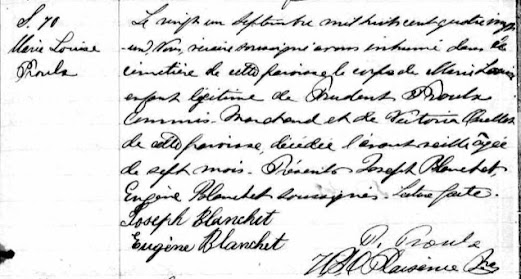 S. 70
Marie Louise
Proulx
Le vingt un Septembre mil huit cent quatre vingt
un Nous, vicaire soussigné avons inhumé dans le
cimetière de cette paroisse le corps de Marie Louise
enfant légitime de Prudent Proulx
Commis Marchand et de Victoria Ouellet
de cette paroisse, décédée l'avant veille âgée
de sept mois. Présents Joseph Blanchet,
Eugène Blanchet soussignés. Lecture faite.
Joseph Blanchet
Eugène Blanchet
P. Proulx
Ptre